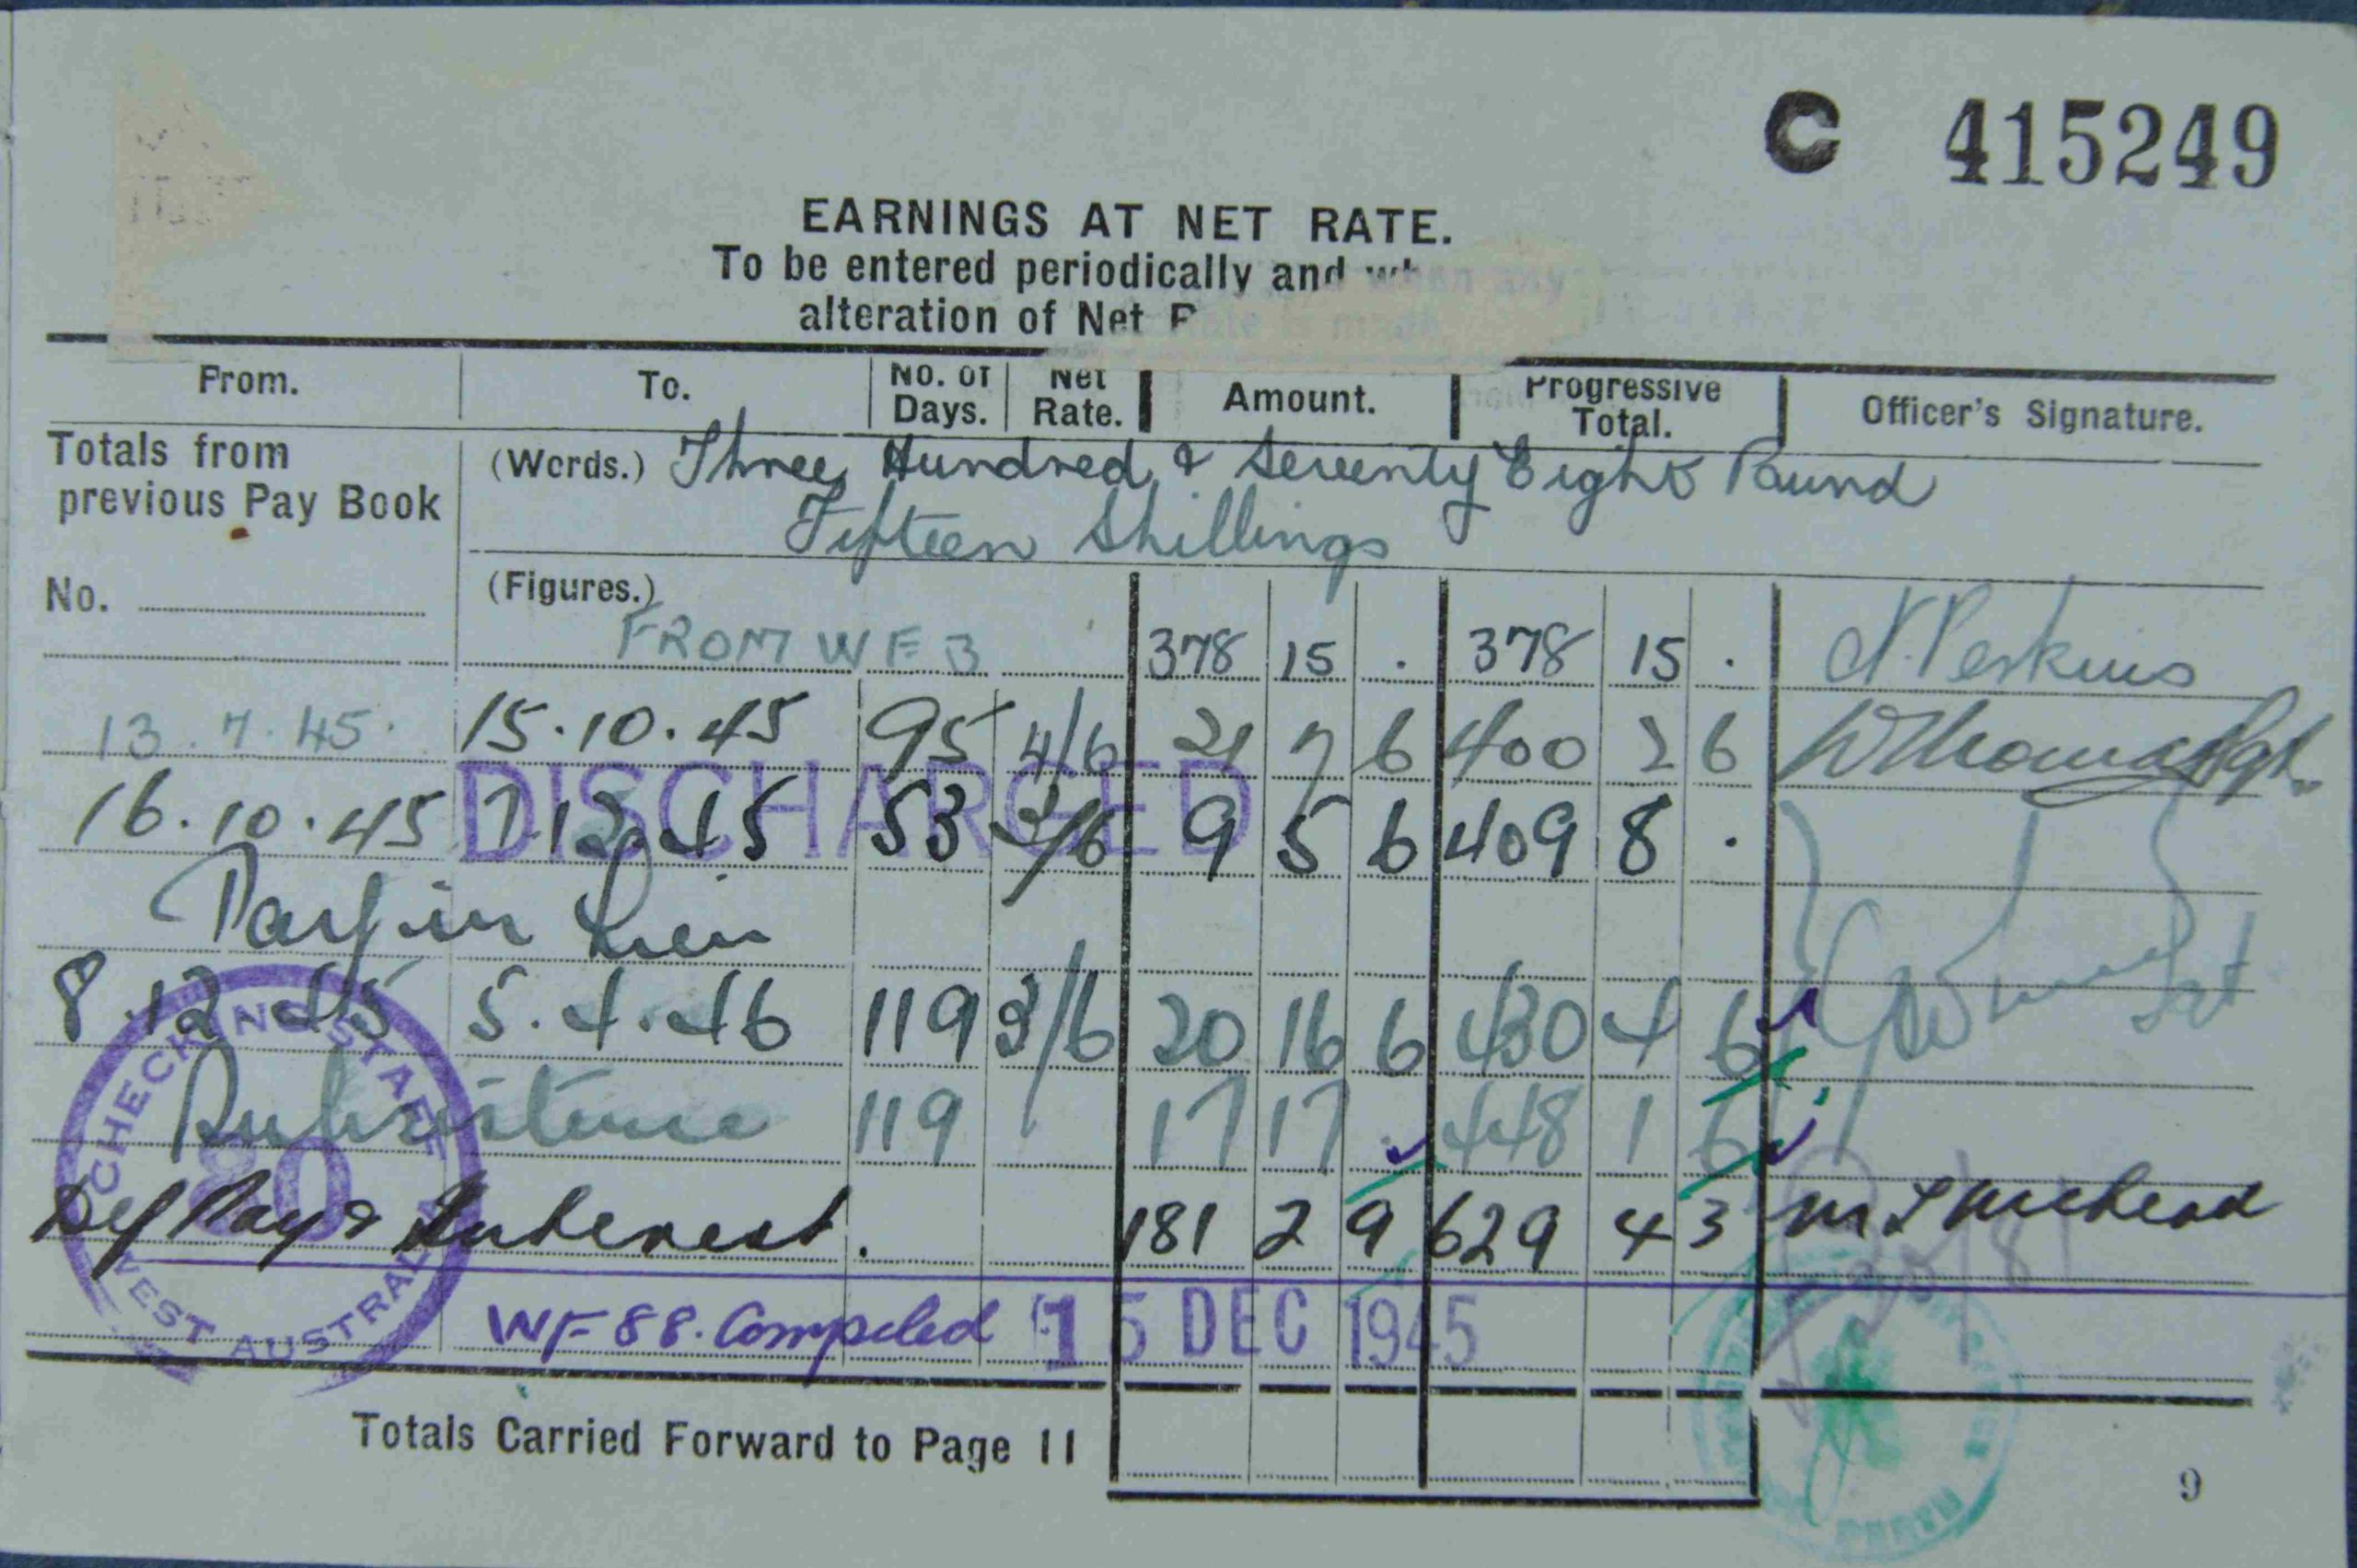 C 415249
EARNINGS AT NET RATE.
To be entered periodically and when any
alteration of Net Rate is made
From. To. No. of Days. Net Rate. Amount. Progressive Total. Officer's Signature.
Totals from previous Pay Book (Words.) Three Hundred & Seventy Eight Pound
Fifteen Shillings
No. (Figures.)
FROM WF 3 378 15 . 378 15 . Perkins
13.7.45. 15.10.45 95 4/6 21 7 6 400 2 6 Sgt.
DISCHARGED
16.10.45 7.12.45 53 3/6 9 5 6 409 8 .
Pay in Lieu
8.12.45 5.4.46 119 3/6 20 16 6 430 4 6
Subsistence 119 17 17 . 448 1 6
Def Pay & Interest. 181 2 9 629 4 3
CHECKING STAFF
80
WEST AUSTRALIA
WF 88. Compiled 15 DEC 1945
Totals Carried Forward to Page 11
PERTH
9